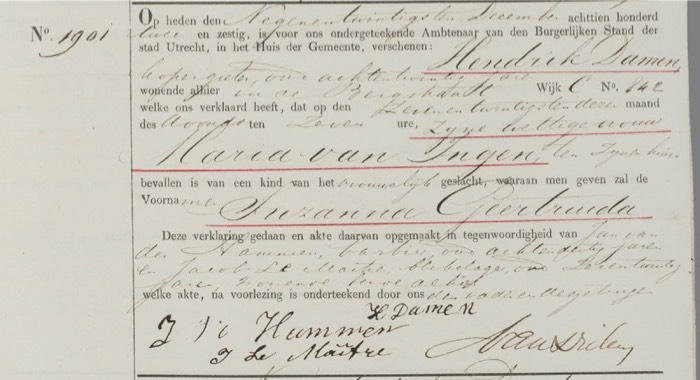 No. 1901
Op heden den Negenentwintigsten December achttien honderd
twee en zestig, is voor ons ondergeteekende Ambtenaar van den Burgerlijken Stand der
stad Utrecht, in het Huis der Gemeente, verschenen:
Hendrik Damen,
kopergieter, oud achtentwintig jaar
wonende alhier in de Bergstraat Wijk C No. 842
welke ons verklaard heeft, dat op den Zevenentwintigsten dezer maand
des Avonds ten Zeven ure, Zijne wettige vrouw
Maria van Ingen, ten Zijnen huize
bevallen is van een kind van het vrouwelijk geslacht, waaraan men geven zal de
Voornamen Suzanna Geertruida
Deze verklaring gedaan en akte daarvan opgemaakt in tegenwoordigheid van Jan van
der Hammen, barbier, oud achtendertig jaren
en Jacob Le Maitre, oud Zevenentwintig
jaar, wonende beide alhier
welke akte, na voorlezing is onderteekend door ons den vader en de getuigen
H Damen
J v d Hammen
J Le Maître